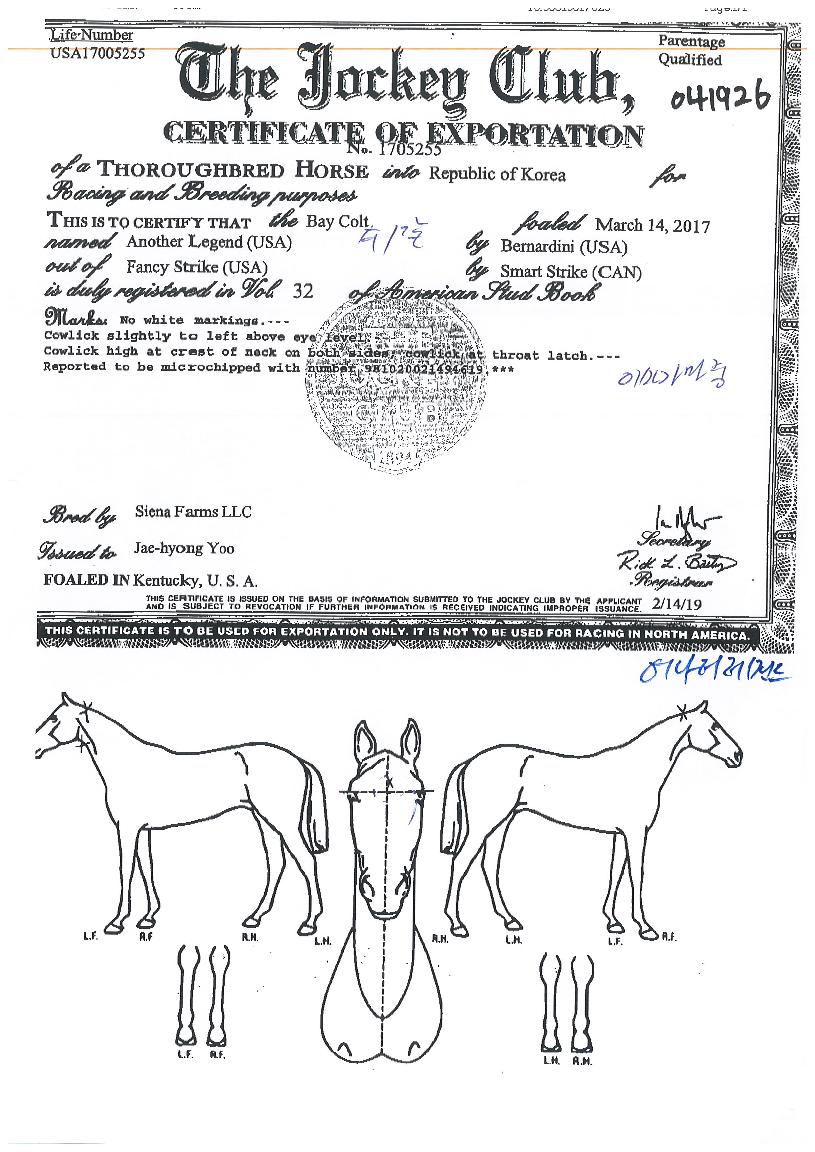 Life-Number
USA17005255
Parentage
Qualified
The Jockey Club,
041926
CERTIFICATE OF EXPORTATION
No. 1705255
of a THOROUGHBRED HORSE into Republic of Korea for
Racing and Breeding purposes
THIS IS TO CERTIFY THAT the Bay Colt, foaled March 14, 2017
named Another Legend (USA) by Bernardini (USA)
out of Fancy Strike (USA) by Smart Strike (CAN)
is duly registered in Vol. 32 of American Stud Book
Marks: No white markings.---
Cowlick slightly to left above eye level;
Cowlick high at crest of neck on both sides; cowlick at throat latch.---
Reported to be microchipped with number 981020021494619.***
Bred by Siena Farms LLC
Issued to Jae-hyong Yoo
Secretary
Rick L. Bailey
Registrar
FOALED IN Kentucky, U. S. A.
THIS CERTIFICATE IS ISSUED ON THE BASIS OF INFORMATION SUBMITTED TO THE JOCKEY CLUB BY THE APPLICANT
AND IS SUBJECT TO REVOCATION IF FURTHER INFORMATION IS RECEIVED INDICATING IMPROPER ISSUANCE. 2/14/19
THIS CERTIFICATE IS TO BE USED FOR EXPORTATION ONLY. IT IS NOT TO BE USED FOR RACING IN NORTH AMERICA.
L.F. R.F. R.H. L.H. R.H. L.H. L.F. R.F.
L.F. R.F. L.H. R.H.